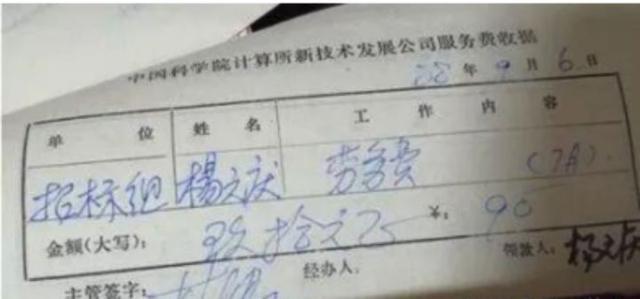 中国科学院计算所新技术发展公司服务费收据
年 9 月 6 日
单 位 姓 名 工 作 内 容
招标组 楊元庆 劳务费 (7月)
金额(大写): 玖拾元正 ¥: 90
主管签字: 经办人: 领款人: 杨元庆